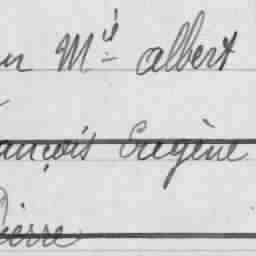 Mie albert
ançois Eugène
Pierre